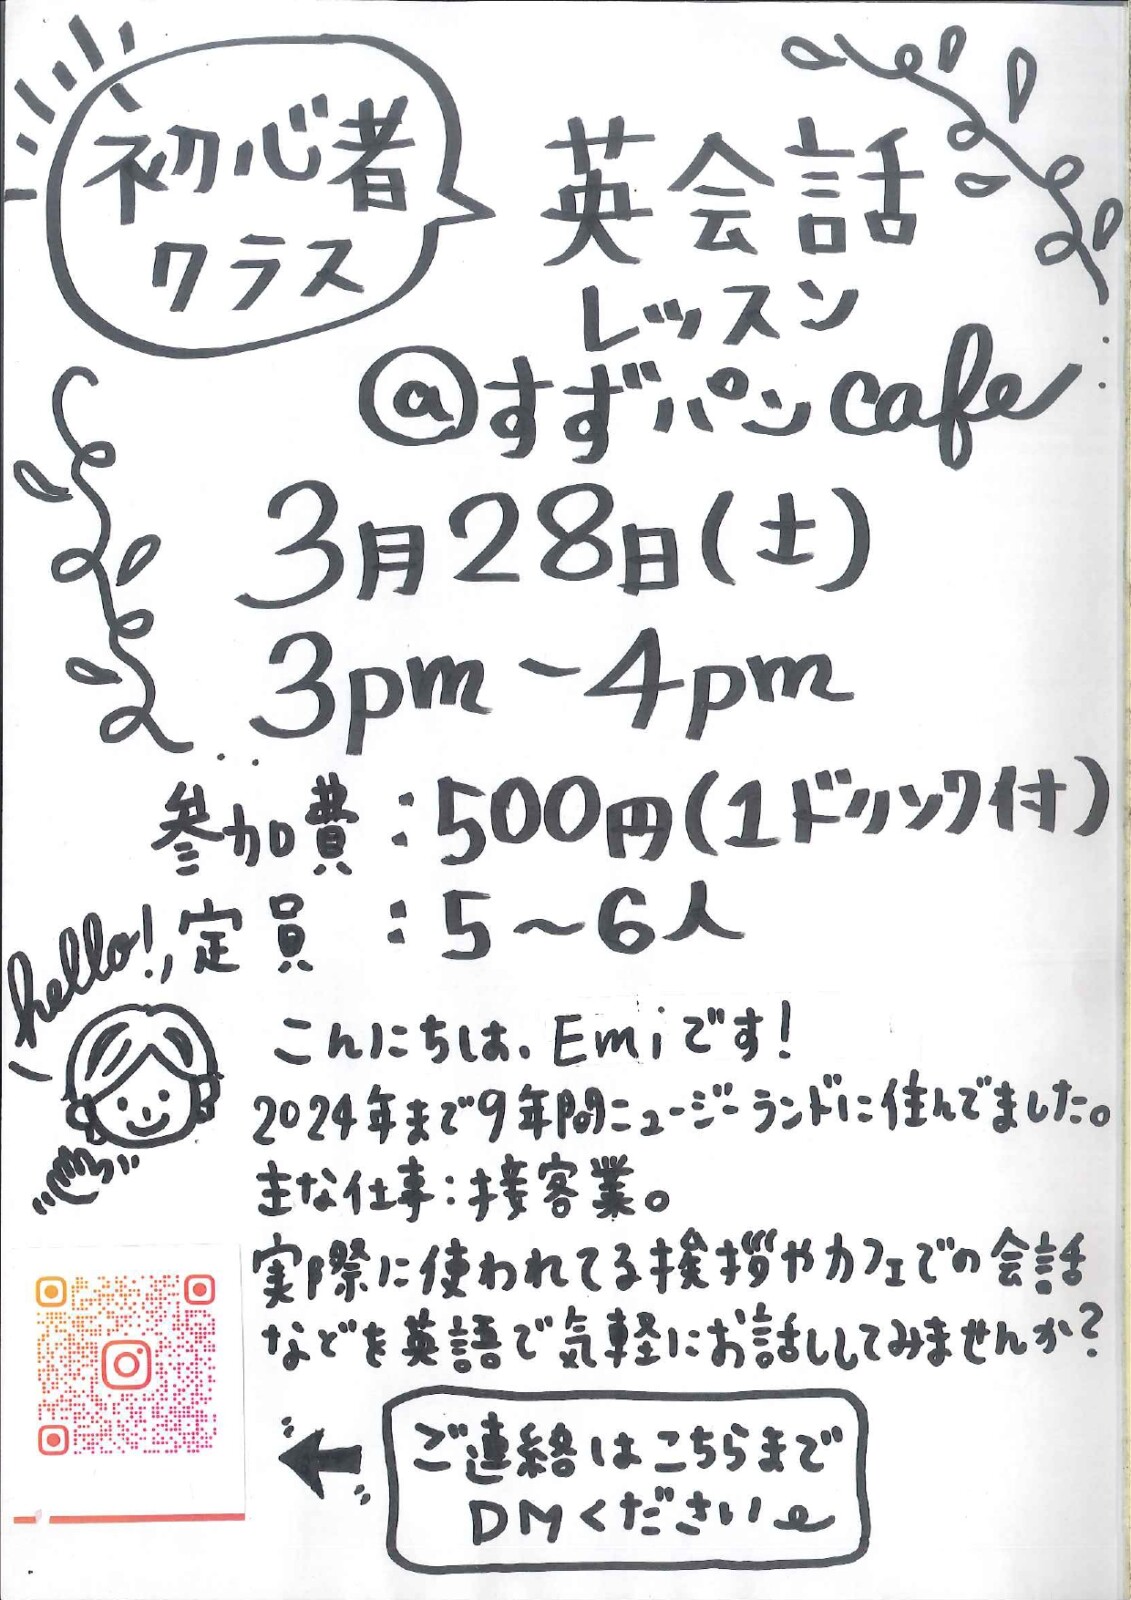 初心者
クラス
英会話
レッスン
@すずパンcafe
3月28日(土)
3pm-4pm
参加費:500円(1ドリンク付)
定員:5~6人
hello!
こんにちは、Emiです!
2024年まで9年間ニュージーランドに住んでました。
主な仕事:接客業。
実際に使われてる挨拶やカフェでの会話
などを英語で気軽にお話ししてみませんか?
ご連絡はこちらまで
DMください